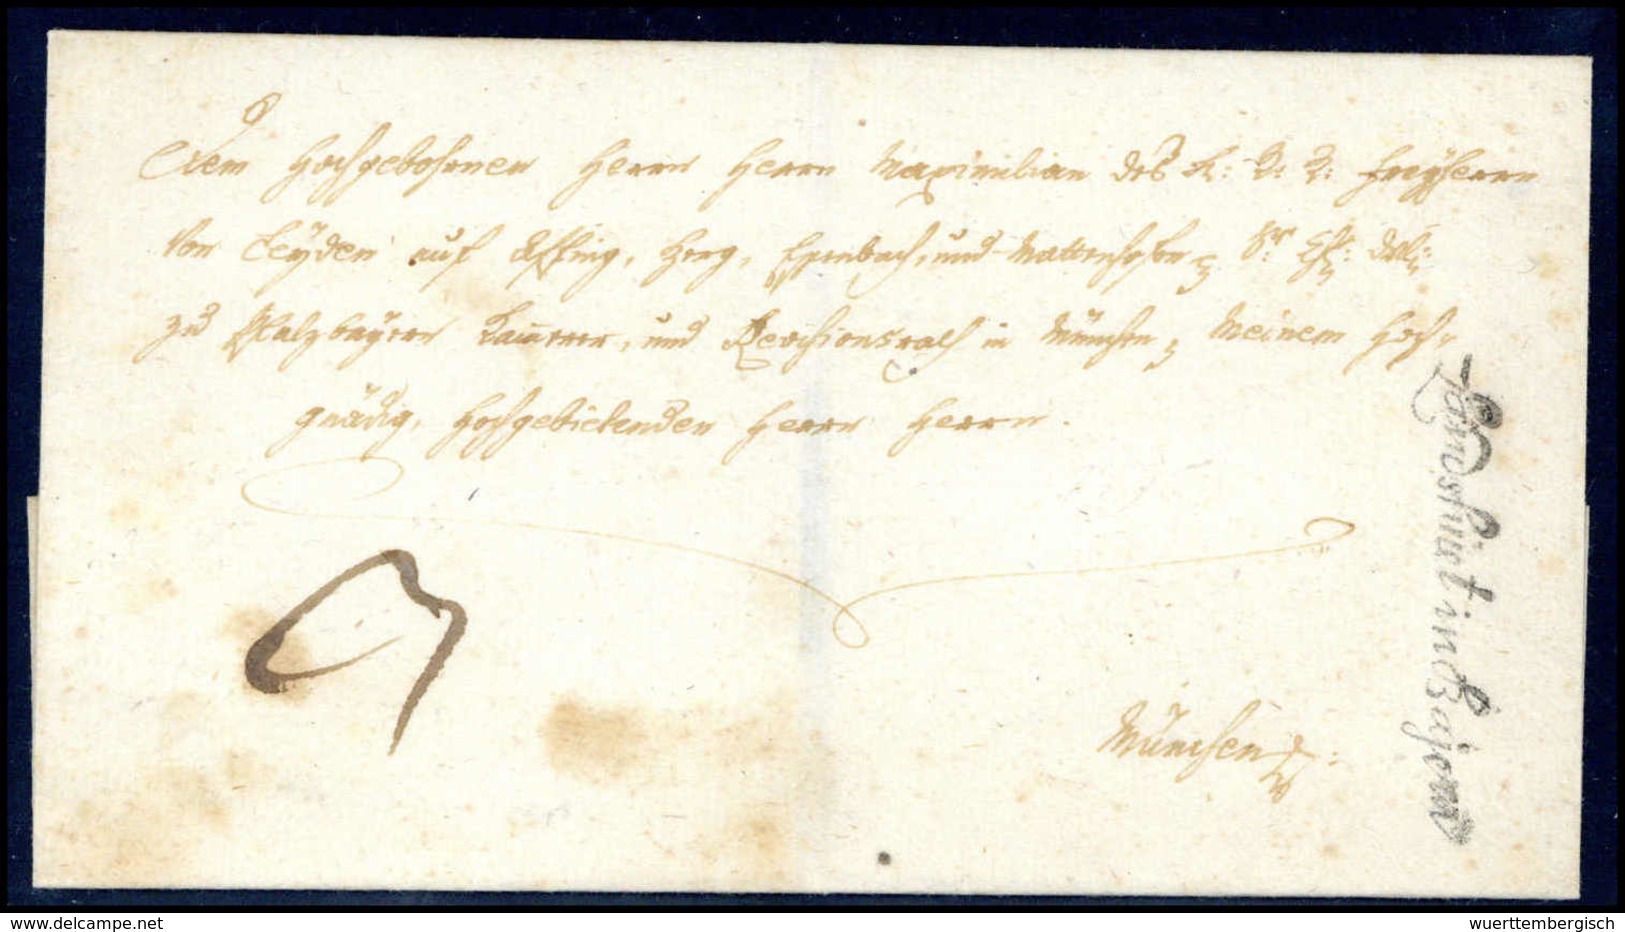 Dem Hochgebohrnen Herrn Herrn Maximilian des H: R: R: Freyherrn
von Leÿden auf Affing, und
zu Pfalzbayern Cammerer, und Revisionsrath in München, Meinem Hoch-
gnädig, Hochgebietenden Herrn Herrn.
München
Landshut in Bajern
delcampe.net
wuerttembergisch